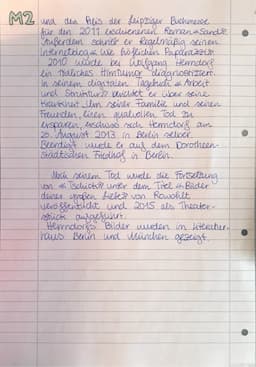 M2
und den Preis der Leipziger Buchmesse
für den 2011 erschienenen Roman «Sand».
Außerdem schrieb er Regelmäßig seinen
Internetblog « Wie höflichen Paparazzi».
2010 wurde bei Wolfgang Herrndorf
ein tödliches Hirntumor diagnostiziert.
In seinem digitalen Tagebuch « Arbeit
und Struktur» berichtet er über seine
Krankheit. Um seiner Familie und seinen
Freunden, einen qualvollen Tod zu
ersparen, erschoss sich Herrndorf am
26. August 2013 in Berlin selber.
Beerdigt wurde er auf dem Dorotheen-
städtischen Friedhof in Berlin.
Nach seinem Tod wurde die Fortsetzung
von « Tschick» unter dem Titel « Bilder
deiner großen Liebe» von Rowohlt
veröffentlicht und 2015 als Theater-
stück aufgeführt.
Herrndorfs Bilder wurden in Literatur-
haus Berlin und München gezeigt.